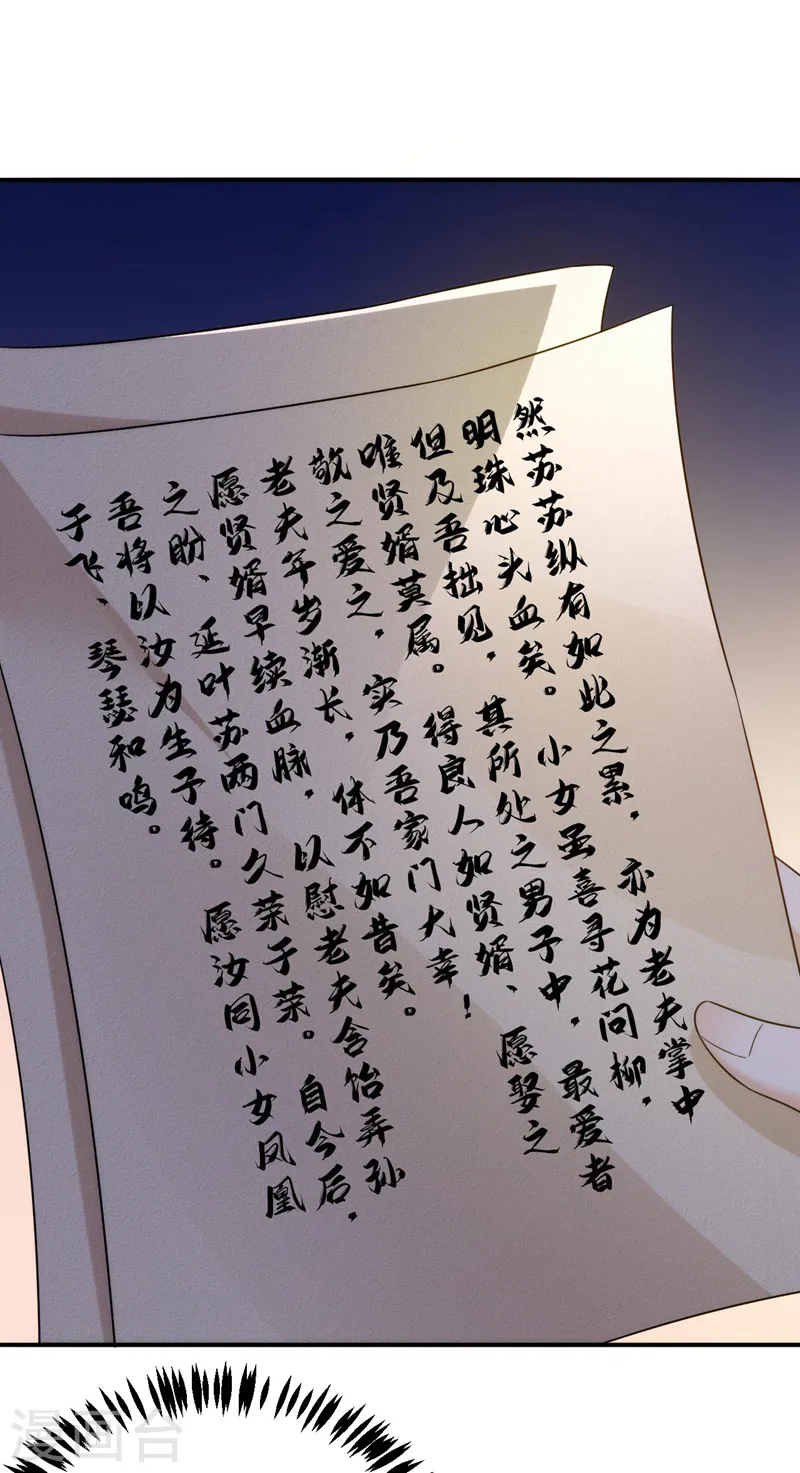 然苏苏纵有如此之累，亦为老夫掌中
明珠心头血矣。小女虽喜寻花问柳，
但及吾拙见，其所处之男子中，最爱者
唯贤婿莫属。得良人如贤婿、愿娶之
敬之爱之，实乃吾家门大幸！
老夫年岁渐长，体不如昔矣。
愿贤婿早续血脉，以慰老夫含饴弄孙
之盼、延叶苏两门久荣于荣。自今后，
吾将以汝为生子待。愿汝同小女凤凰
于飞、琴瑟和鸣。
漫画台